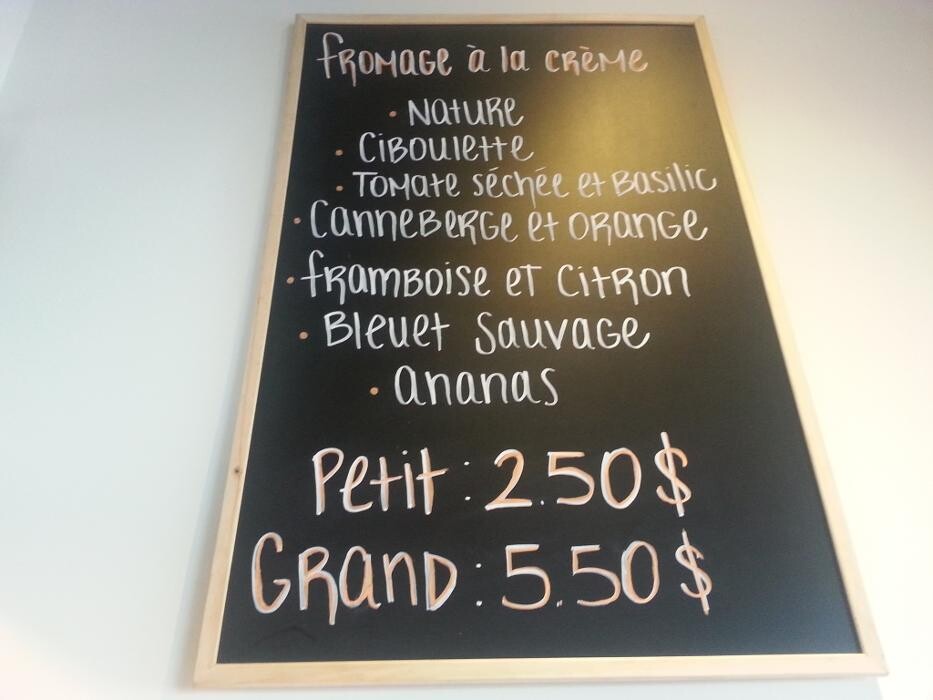 fromage à la crème
• Nature
• Ciboulette
• Tomate séchée et Basilic
• Canneberge et orange
• framboise et citron
• Bleuet Sauvage
• ananas
Petit : 2.50$
Grand : 5.50$